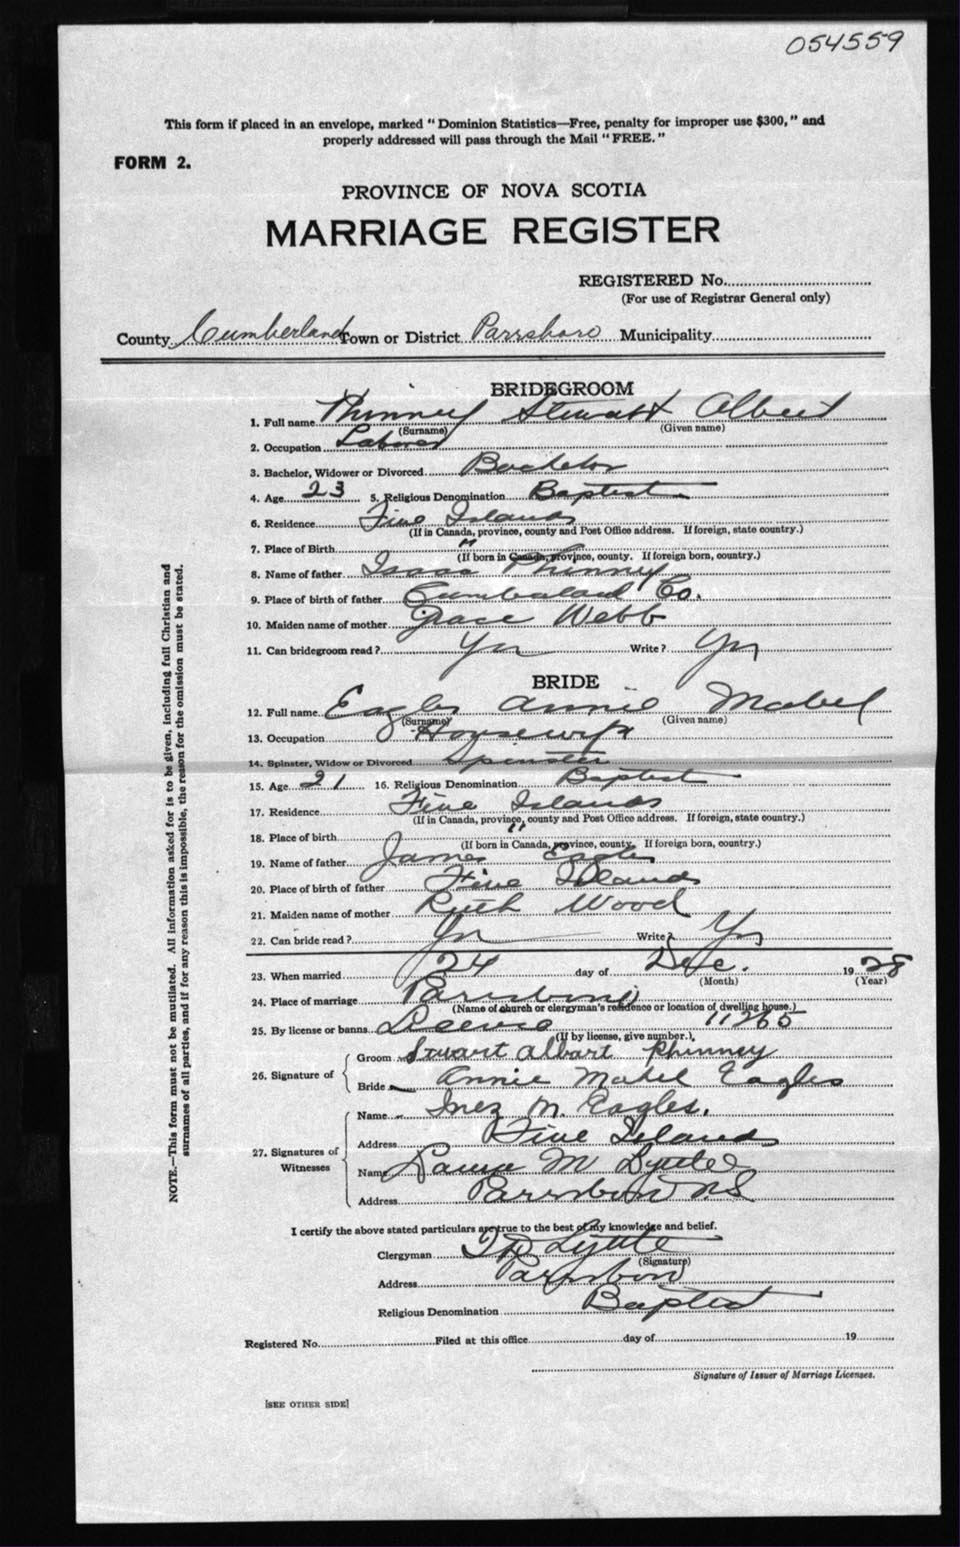 054559
This form if placed in an envelope, marked "Dominion Statistics—Free, penalty for improper use $300," and
properly addressed will pass through the Mail "FREE."
FORM 2.
PROVINCE OF NOVA SCOTIA
MARRIAGE REGISTER
REGISTERED No.
(For use of Registrar General only)
County Cumberland Town or District Parrsboro Municipality
BRIDEGROOM
1. Full name Phinney Stewart Albert
(Surname) (Given name)
2. Occupation Laborer
3. Bachelor, Widower or Divorced Bachelor
4. Age 23 5. Religious Denomination Baptist
6. Residence Five Islands
(If in Canada, province, county and Post Office address. If foreign, state country.)
7. Place of Birth "
(If born in Canada, province, county. If foreign born, country.)
8. Name of father Isaac Phinney
9. Place of birth of father Cumberland Co.
10. Maiden name of mother Grace Webb
11. Can bridegroom read? Yes Write? Yes
BRIDE
12. Full name Eagles Annie Mabel
(Surname) (Given name)
13. Occupation Housewife
14. Spinster, Widow or Divorced Spinster
15. Age 21 16. Religious Denomination Baptist
17. Residence Five Islands
(If in Canada, province, county and Post Office address. If foreign, state country.)
18. Place of birth "
(If born in Canada, province, county. If foreign born, country.)
19. Name of father James Eagles
20. Place of birth of father Five Islands
21. Maiden name of mother Ruth Wood
22. Can bride read? Yes Write? Yes
23. When married 24 day of Dec. 1928
(Month) (Year)
24. Place of marriage Parrsboro
(Name of church or clergyman's residence or location of dwelling house.)
25. By license or banns License 11265
(If by license, give number.)
26. Signature of
Groom Stuart Albart Phinney
Bride Annie Mabel Eagles
27. Signatures of Witnesses
Name Inez M. Eagles.
Address Five Islands
Name Laura M Lyttle
Address Parrsboro NS
I certify the above stated particulars are true to the best of my knowledge and belief.
Clergyman Lyttle
(Signature)
Address Parrsboro
Religious Denomination Baptist
Registered No. Filed at this office day of 19
Signature of Issuer of Marriage Licenses.
[SEE OTHER SIDE]
NOTE.—This form must not be mutilated. All information asked for is to be given, including full Christian and
surnames of all parties, and if for any reason this is impossible, the reason for the omission must be stated.